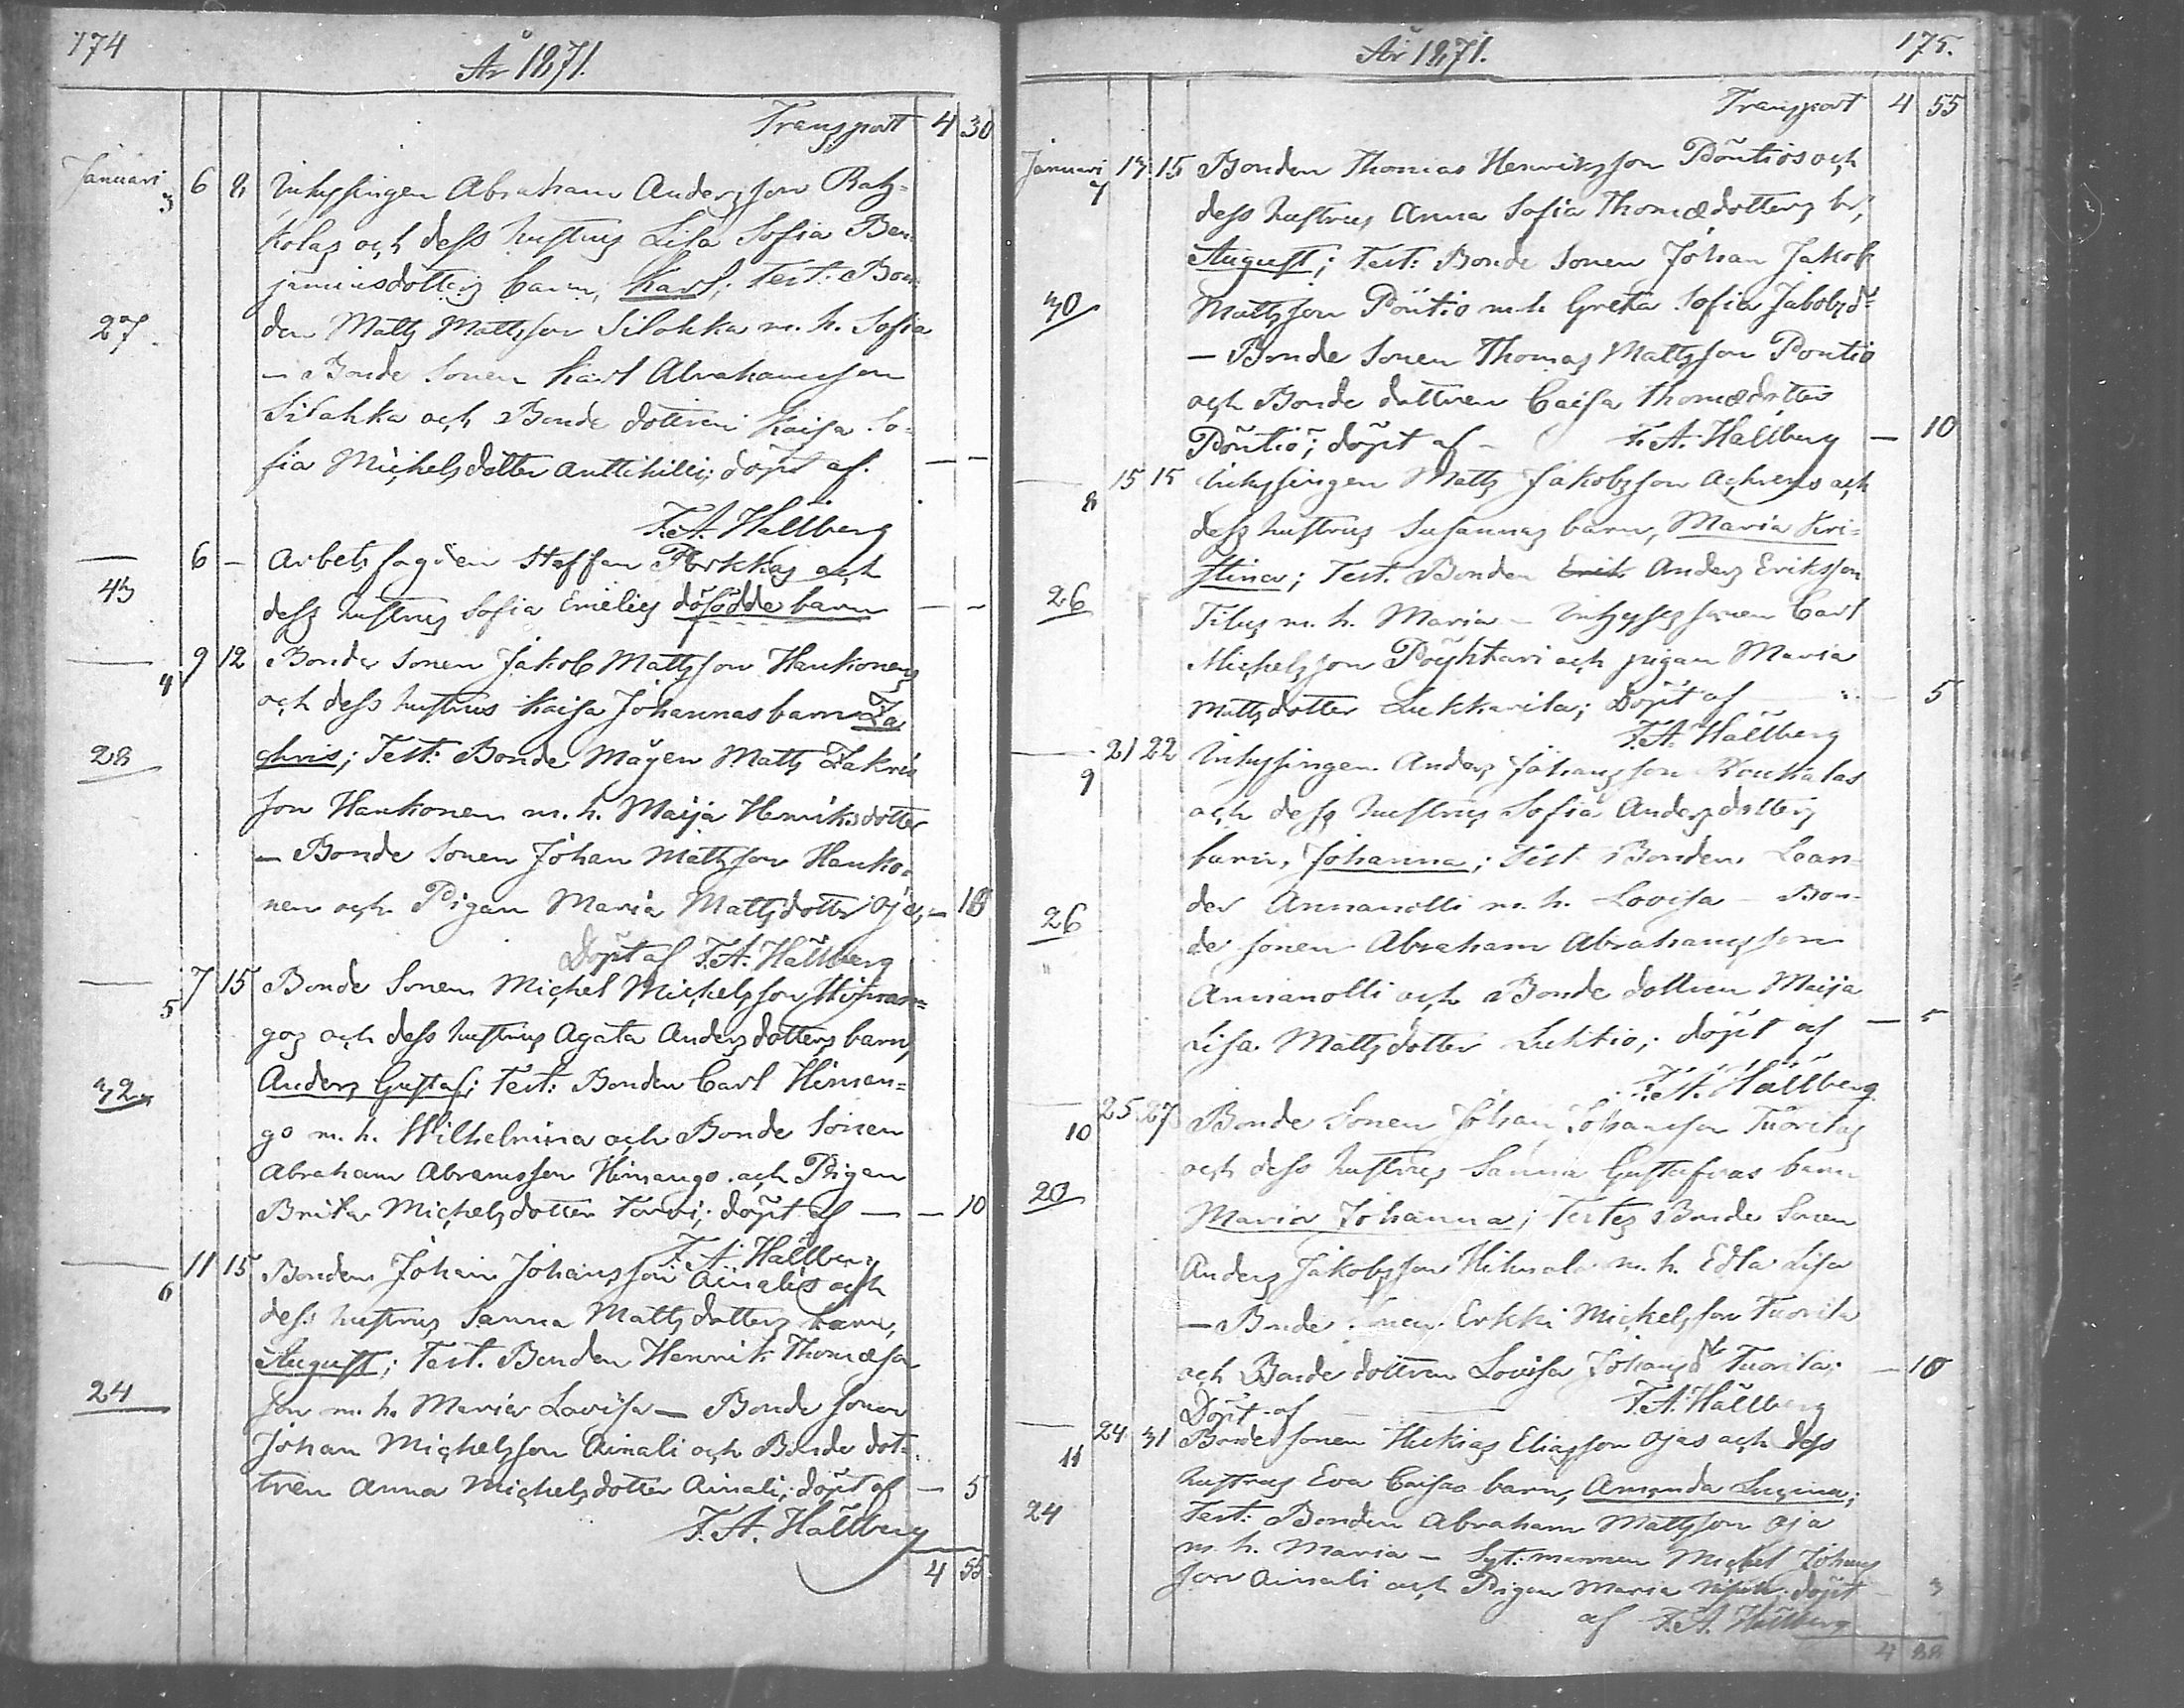 174
År 1871.
Transport 4 30
Januari 3 6 8 Inhysingen Abraham Andersson Rah-
kolas och dess hustrus Lisa Sofia Ben-
jaminsdotters barn, Karl; Test: Bon-
27. den Matts Mattsson Silahka m. h. Sofia
— Bonde Sonen Karl Abrahamsson
Silahka och Bonde dottren Kaisa So-
fia Michelsdotter Anttihilli; döpt af. — —
F. A. Hällberg
— 6 – Arbetsfogden Staffan Perkkas och
43 dess hustrus Sofia Emelies dödfödde barn — –
— 4 9 12 Bonde Sonen Jakob Mattsson Hankonens
och dess hustrus Kaisa Johannas barn Za
28 chris; Test: Bonde Mågen Matts Zakris
son Hankonen m. h. Maija Henriksdotter
— Bonde Sonen Johan Mattsson Hanko-
nen och Pigan Maria Mattsdotter Oja; — 10
Döpt af F. A. Hällberg
— 5 7 15 Bonde Sonen Michel Michelsson Himan-
gos och dess hustrus Agata Andersdotters barn,
32 Anders Gustaf; Test: Bonden Carl Himan-
go m. h. Wilhelmina och Bonde Sonen
Abraham Abramsson Himango och Pigan
Brita Michelsdotter Torvi; döpt af — — 10
F. A. Hällberg
— 6 11 15 Bonden Johan Johansson Ainalis och
dess hustrus Sanna Mattsdotters barn,
August; Test. Bonden Henrik Thomæsson
24 son m. h. Maria Lovisa — Bonde sonen
Johan Michelsson Ainali och Bonde dot-
tren Anna Michelsdotter Ainali; döpt af — 5
F. A. Hällberg
4 55
År 1871. 175.
Transport 4 55
Januari 7 13 15 Bonden Thomas Henriksson Pöntiös och
dess hustrus Anna Sofia Thomædotters br,
August; Test: Bonde Sonen Johan Jakob
30 Mattsson Pöntiö m. h. Greta Sofia Jakobsdr
— Bonde Sonen Thomas Mattsson Pontio
och Bonde dottren Caisa Thomædotter
Pöntiö; döpt af – F. A. Hallberg — 10
— 8 15 15 Inhysingen Matts Jakobsson Achrens och
dess hustrus Susannas barn, Maria Kri-
stina; Test. Bonden Erik Anders Eriksson
26 Tilus m. h. Maria — Inhysessonen Carl
Michelsson Pöyhtäri och pigan Maria
Mattsdotter Lukkarila; Döpt af — — 5
F. A. Hällberg
— 9 21 22 Inhysingen Anders Johansson Roukalas
och dess hustrus Sofia Andersdotters
barn, Johanna; Test Bonden Lean-
26 der Annanolli m. h. Lovisa – Bon-
de sonen Abraham Abrahamsson
Annanolli och Bonde dottren Maija
Lisa Mattsdotter Luhtio; döpt af — 5
F. A. Hällberg
— 10 25 27 Bonde Sonen Johan Johansson Tuorilas
och dess hustrus Sanna Gustafvas barn
20 Maria Johanna; Testes Bonde Sonen
Anders Jakobsson Hihnala m. h. Edla Lisa
— Bonde Sonen Erkki Michelsson Tuorila
och Bonde dottren Lovisa Johansdr Tuorila; — 10
Döpt af — F. A. Hällberg
— 11 24 31 Bondesonen Hiskias Eliasson Ojas och dess
hustrus Eva Caisas barn, Amanda Lugina;
24 Test: Bonden Abraham Mattsson Oja
m. h. Maria — Syt: mannen Michel Johans
son Ainali och Pigan Maria döpt 3
af F. A. Hällberg
4 88